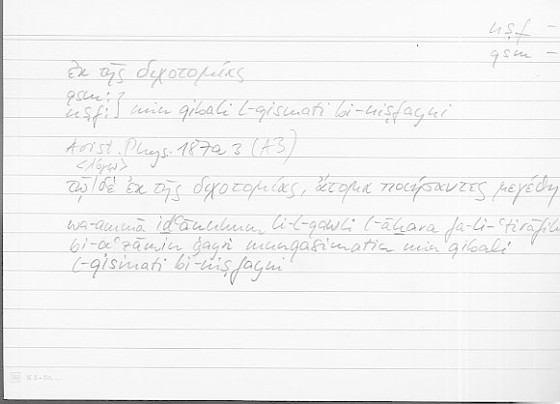 nṣf –
qsm –
ἐκ τῆς διχοτομίας
qsm:
nṣf: } min qibali l-qismati bi-niṣfayni
Arist. Phys. 187a3 (A3)
<λόγῳ>
τῷ δὲ ἐκ τῆς διχοτομίας, ἄτομα ποιήσαντες μεγέθη
wa-ammā iḏʿānuhum li-l-qawli l-āḫara fa-li-ʿtirāfihi
bi-aʿẓāmin ġayri munqasimatin min qibali
l-qismati bi-niṣfayni